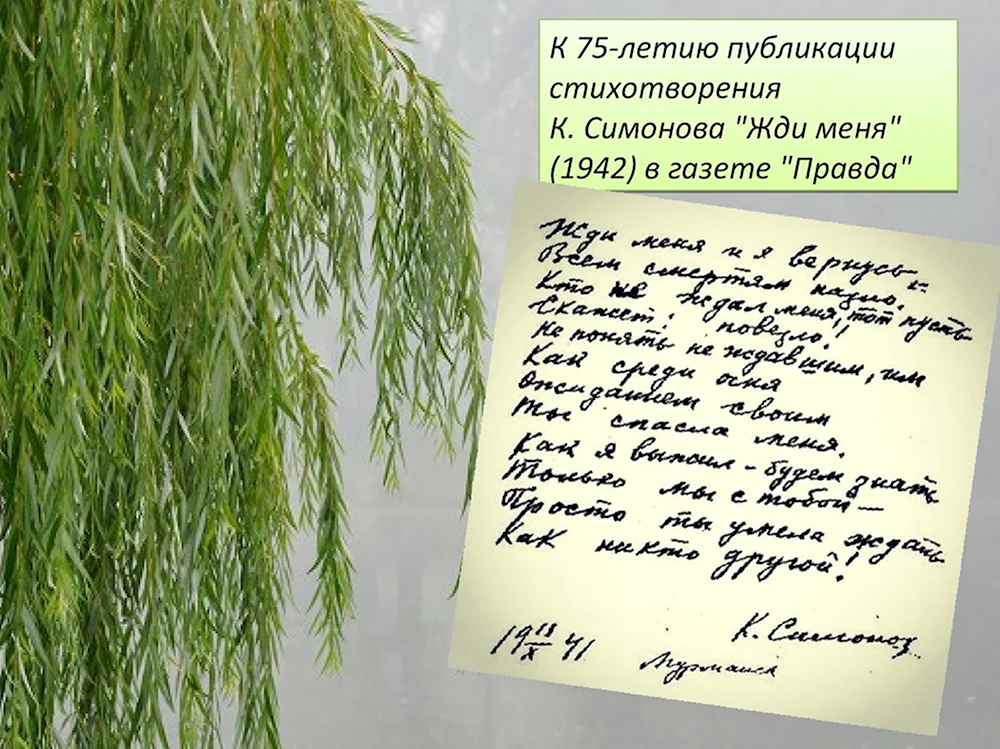 К 75-летию публикации
стихотворения
К. Симонова "Жди меня"
(1942) в газете "Правда"
Жди меня и я вернусь –
Всем смертям назло.
Кто не ждал меня, тот пусть
Скажет: повезло!
Не понять не ждавшим, им
Как среди огня
Ожиданием своим
Ты спасла меня.
Как я выжил – будем знать
Только мы с тобой –
Просто ты умела ждать
Как никто другой!
К. Симонов
19 18/X 41
Мурманск